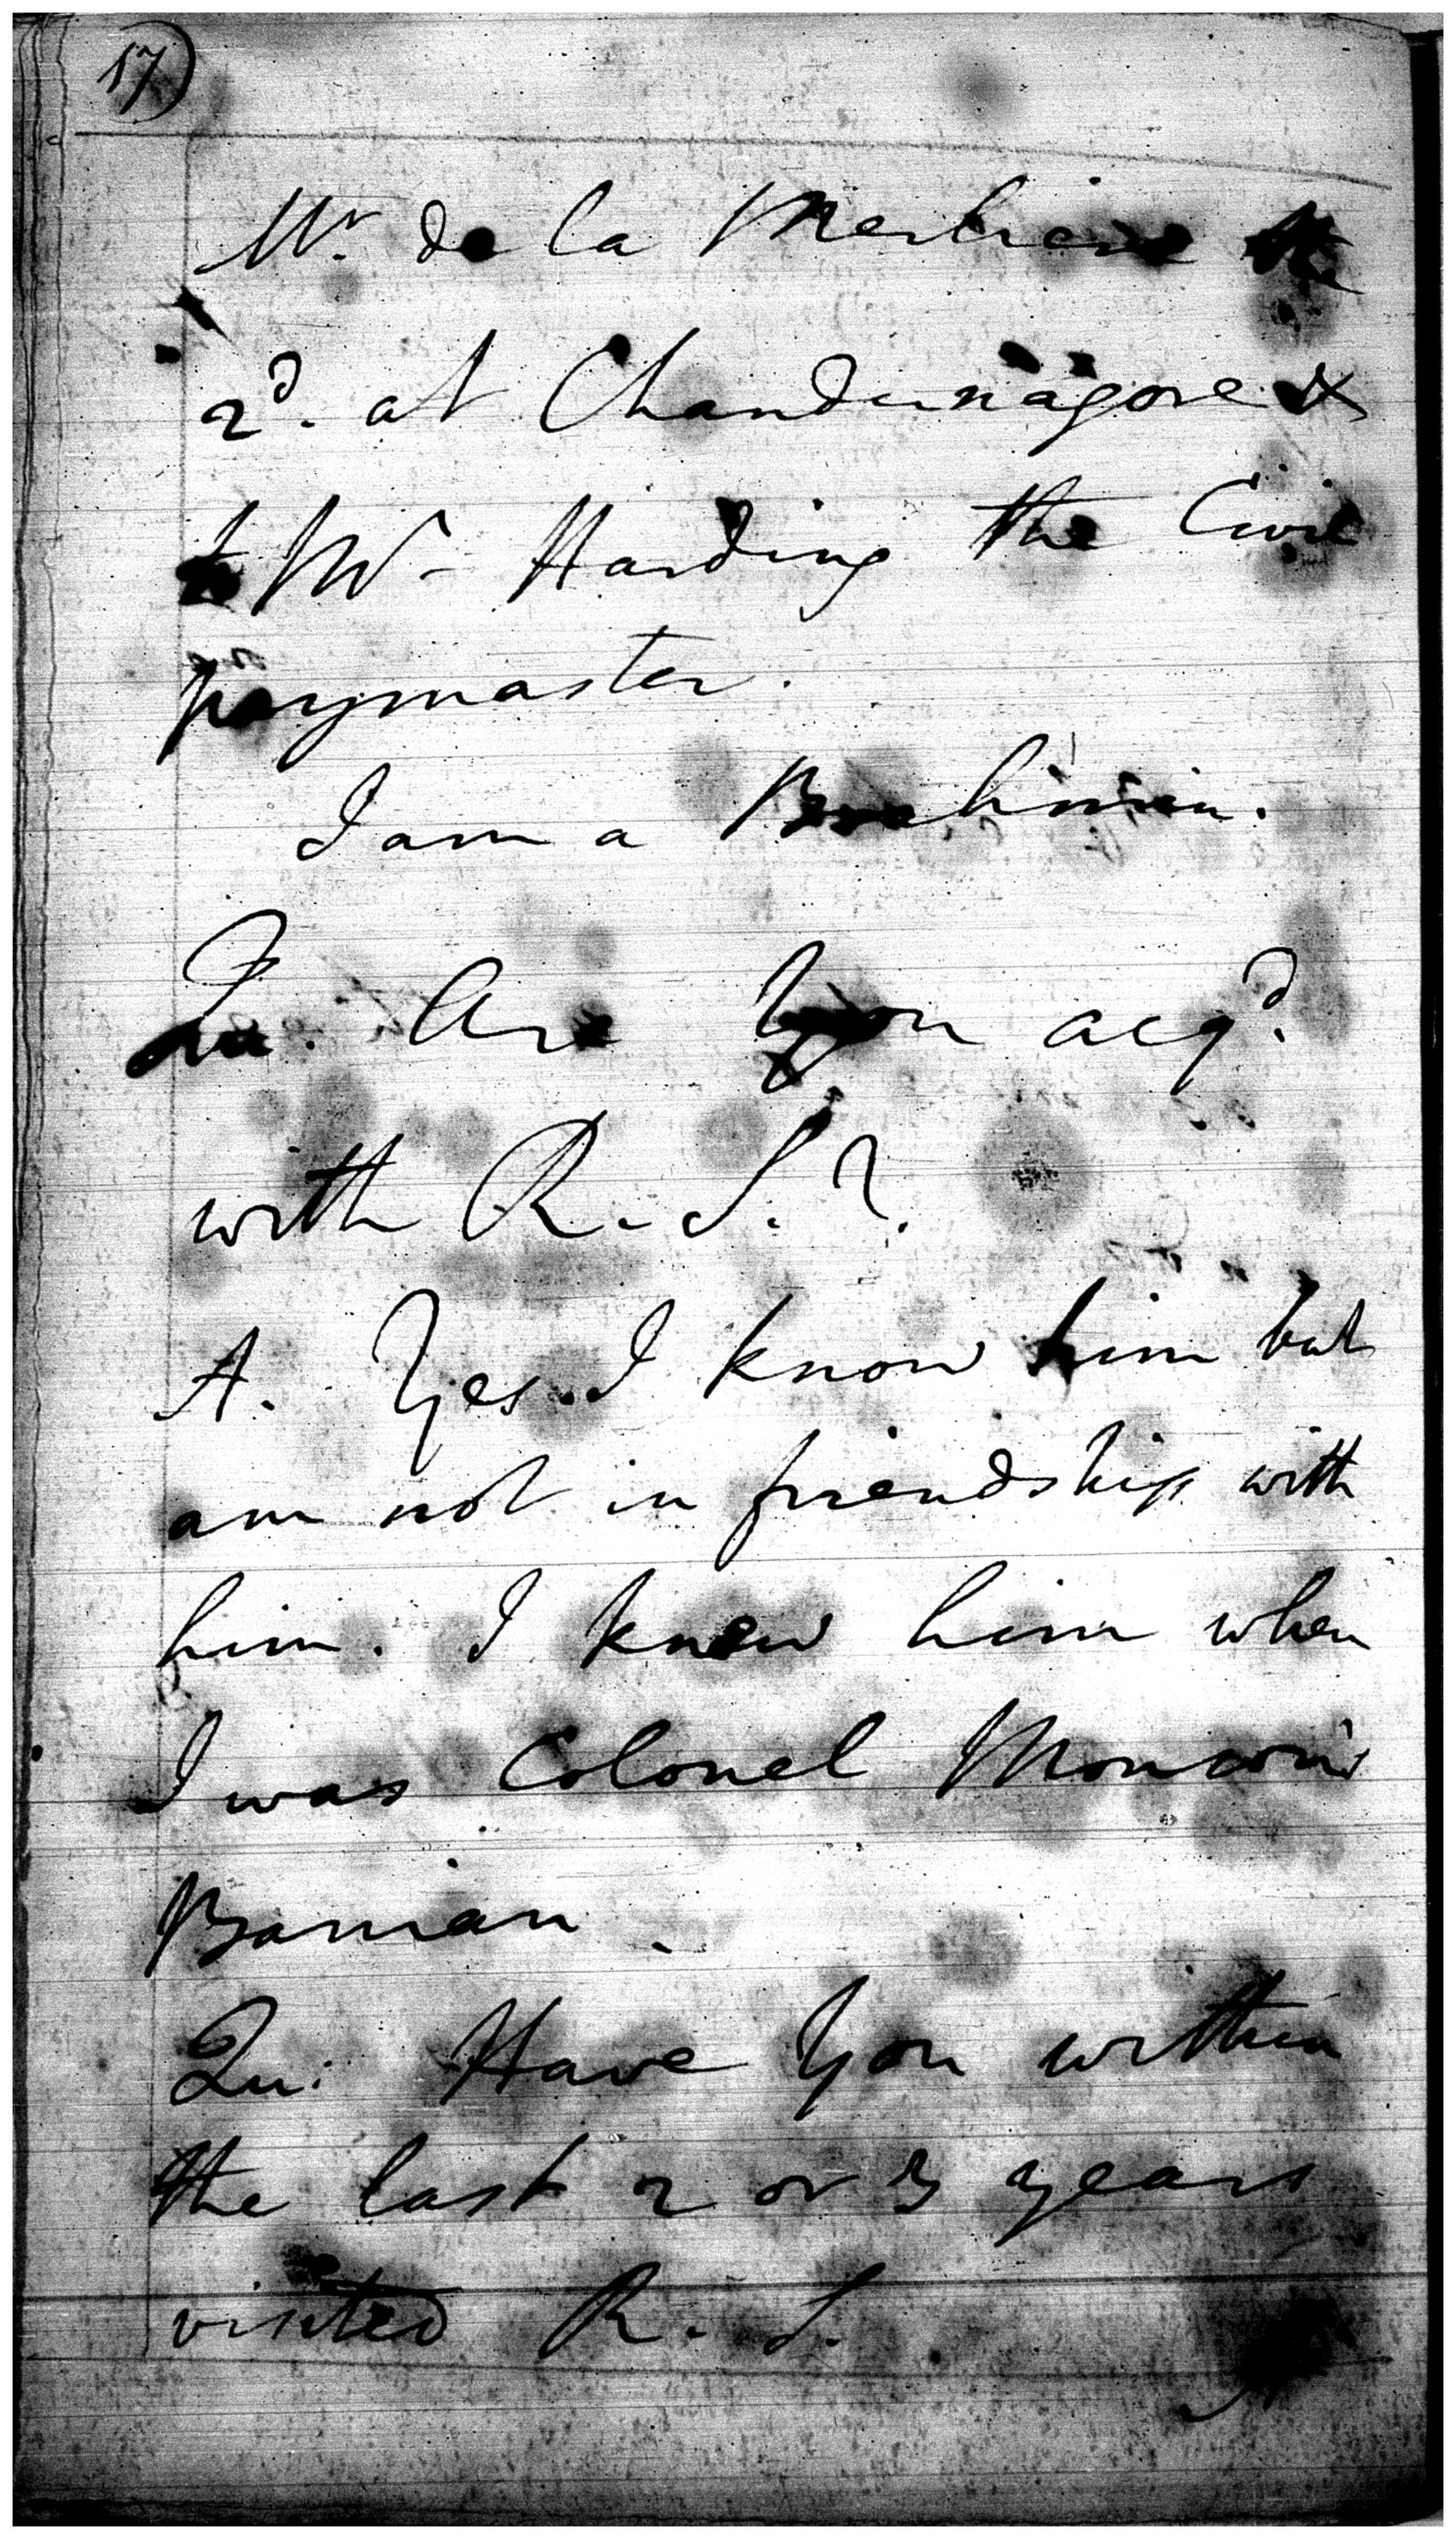 17)
Mr. de la Merliere the
2d. at Chandernagore &
to Mr - Harding the Civil
paymaster.
I am a Brahmin.
Qu. Are You acqd.
with R. S.?
A. Yes. I know him but
am not in friendship with
him. I knew him when
I was Colonel Monson's
Banian.
Qu: Have You within
the last 2 or 3 years
visited R. S.